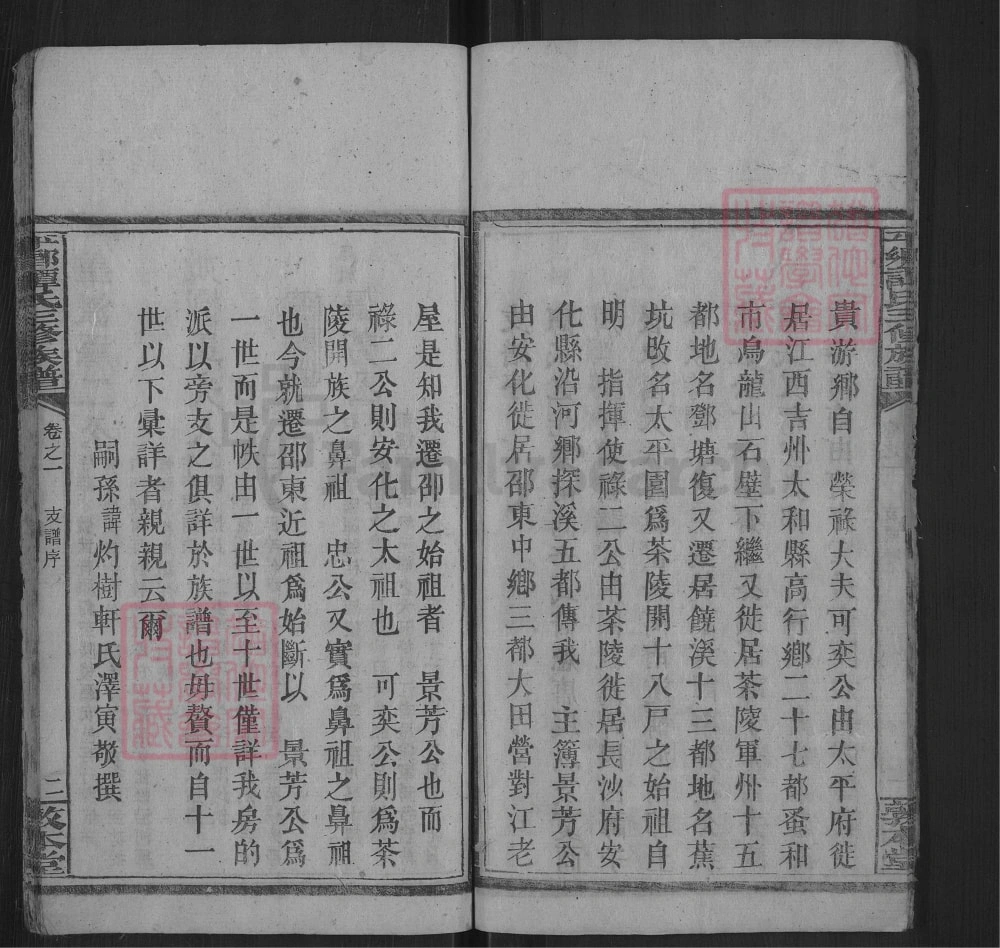 貴游鄉自　榮祿大夫可奕公由太平府徙
居江西吉州太和縣高行鄉二十七都蚤和
市鳥龍山石壁下繼又徙居茶陵軍州十五
都地名鄧塘復又遷居饒溪十三都地名蕉
坑改名太平園爲茶陵開十八戸之始祖自
明　指揮使祿二公由茶陵徙居長沙府安
化縣沿河鄉探溪五都傳我　主簿景芳公
由安化徙居邵東中鄉三都大田營對江老
屋是知我遷邵之始祖者　景芳公也而
祿二公則安化之太祖也　可奕公則爲茶
陵開族之鼻祖　忠公又實爲鼻祖之鼻祖
也今就遷邵東近祖爲始斷以　景芳公爲
一世而是帙由一世以至十世僅詳我房的
派以旁支之俱詳於族譜也毋贅而自十一
世以下彙詳者親親云爾
嗣孫諱灼樹軒氏澤寅敬撰
譚氏三修族譜
卷之一
支譜序
二
敦本堂